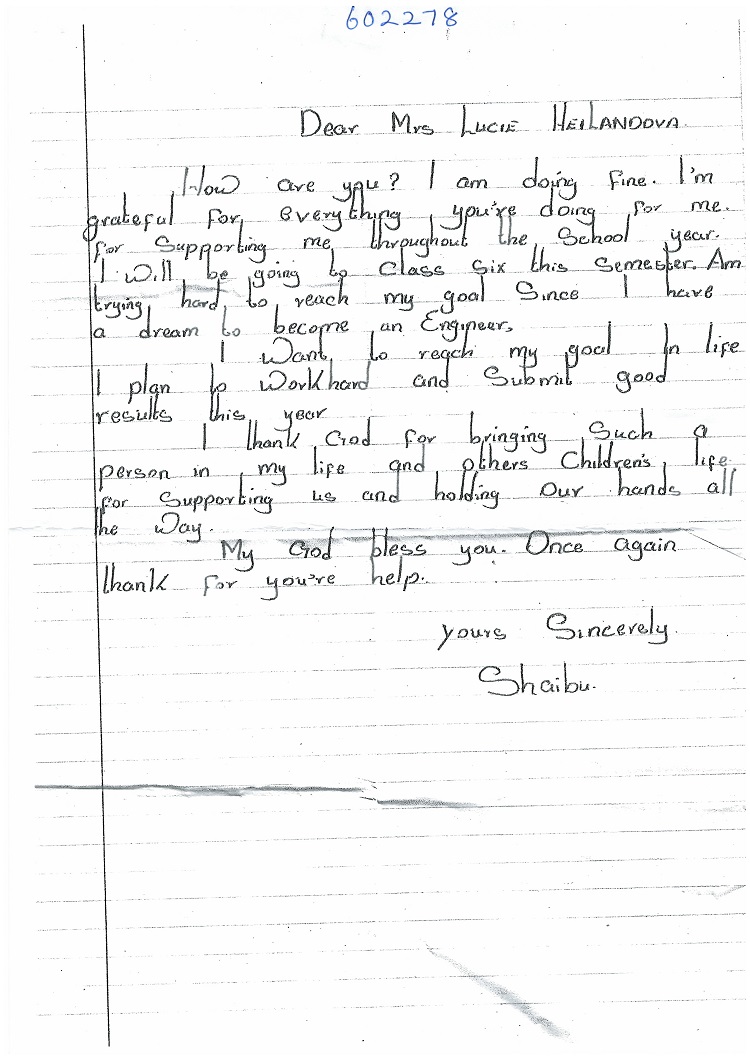 602278
Dear Mrs LUCIE HEILANDOVA
How are you? I am doing fine. I'm
grateful for everything you're doing for me.
for Supporting me throughout the School year.
I will be going to class six this Semester. Am
trying hard to reach my goal Since I have
a dream to become an Engineer.
I Want to reach my goal In life
I plan to Workhard and Submit good
results this year
I thank God for bringing Such a
person in my life and others Children's life
for Supporting us and holding Our hands all
the Way.
My God bless you. Once again
thank for you're help.
yours Sincerely.
Shaibu.